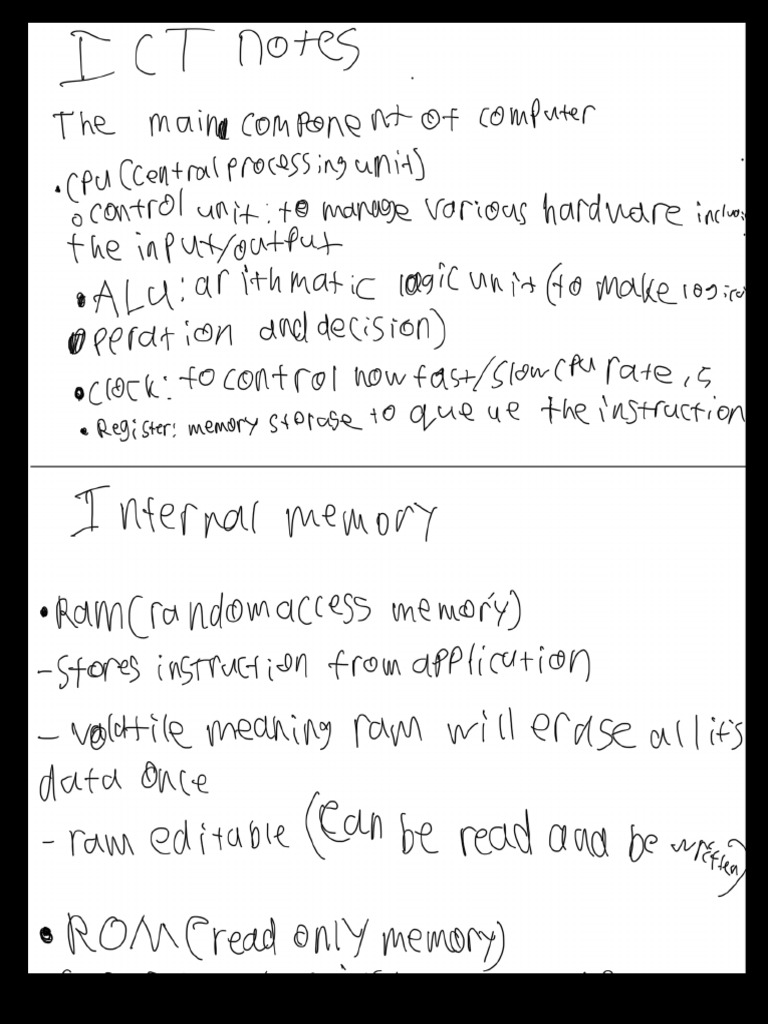 ICT notes
The main component of computer
• CPU (central processing unit)
o control unit: to manage various hardware
the input/output
• ALU: arithmatic logic unit (to make
operation and decision)
• clock: to control how fast/slow CPU rate is
• Register: memory storage to queue the instruction
Internal memory
• Ram (random access memory)
- Stores instruction from application
- volatile meaning ram will erase all it's
data once
- ram editable (can be read and be written)
• ROM (read only memory)